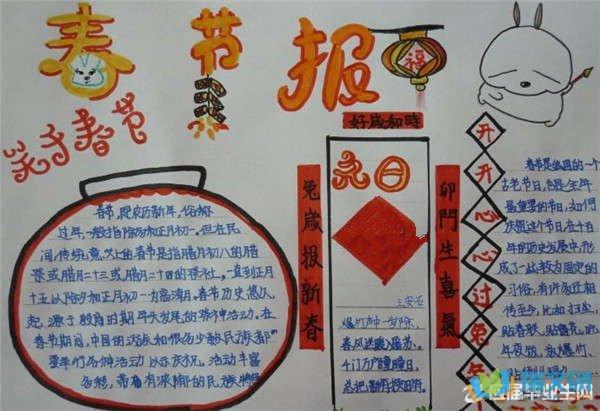 春节报
福
关于春节
春节,是农历新年,俗称
过年,一般指除夕和正月初一。但在民
间,传统意义上的春节是指腊月初八的腊
祭或腊月二十三或腊月二十四的祭灶,一直到正月
十五,以除夕和正月初一为高潮。春节历史悠久
起源于殷商时期年头岁尾的祭神活动。在
春节期间,中国的汉族和很多少数民族都
要举行各种活动以示庆祝。活动丰富
多彩,带有浓郁的民族特
好歲和時
兔歲报新春
卯門生喜氣
元日
王安石
爆竹声中一岁除,
春风送暖入屠苏。
千门万户曈曈日,
总把新桃换旧符。
开开心心过兔年
春节是我国的一个
古老节日,
是重要的节日,如何
庆祝这个节日,在千百
年的历史发展中,形
成了一些较为固定的
习俗,有许多还相
传至今,比如扫尘,
贴春联,贴窗花,吃
年夜饭,放爆竹,
届毕业生网